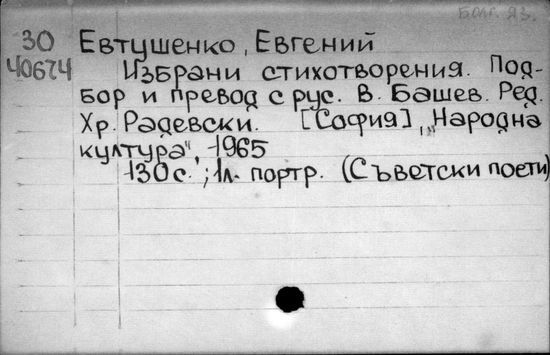 Болг. яз.
30 Евтушенко, Евгений
40674 Избрани стихотворения. Под-
бор и превод с рус. В. Башев. Ред.
Хр. Радевски. [София], „Народна
култура", 1965
130 с.; 1 л. портр. (Съветски поети)